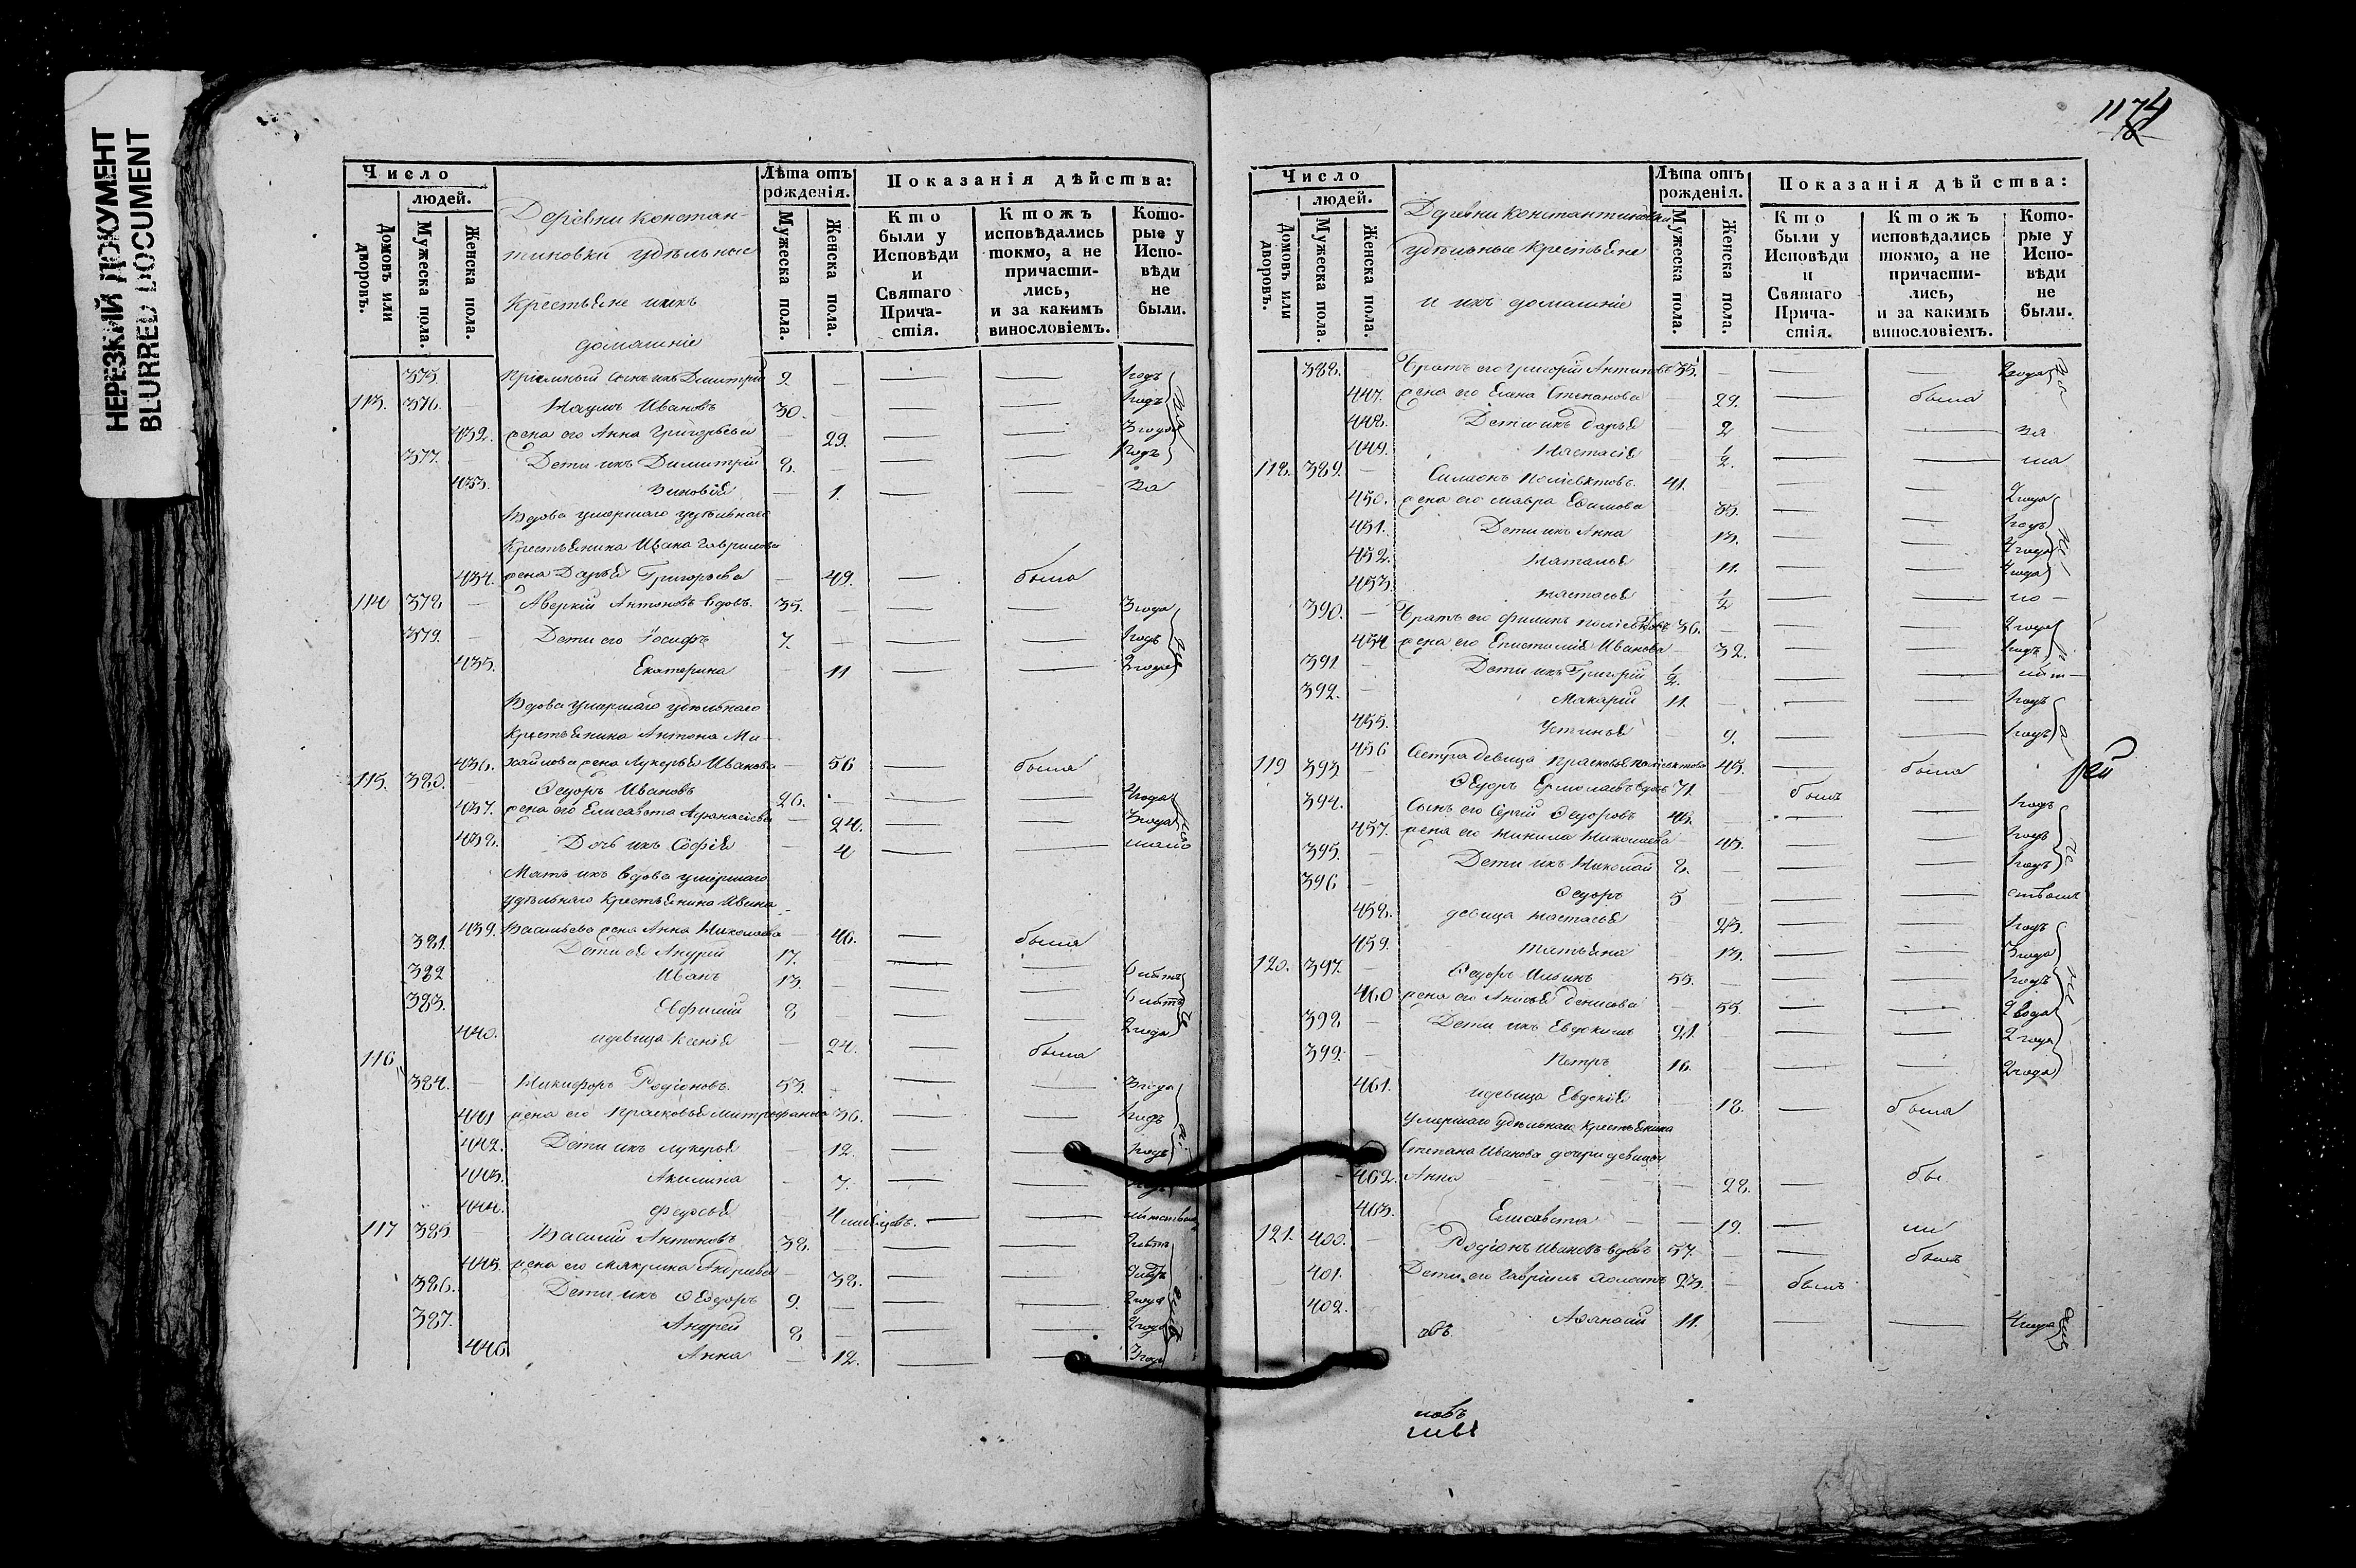 НЕРЕЗКИЙ ДОКУМЕНТ
BLURRED DOCUMENT
Число
людей.
Домовъ или дворовъ.
Мужеска пола.
Женска пола.
Деревни Констан-
тиновки удѣльные
Крестьяне ихъ
домашніе
Лѣта отъ рожденія.
Мужеска пола.
Женска пола.
Показанія дѣйства:
Кто были у Исповѣди и Святаго Причастія.
Ктожъ исповѣдались токмо, а не причастились, и за какимъ винословіемъ.
Которые у Исповѣди не были.
375. Пріемный сынъ ихъ Димитрій 9. 1 годъ
113. 376. Наумъ Ивановъ 30. 1 годъ
432. жена его Анна Григорьева 29. 3 года
377. Дети ихъ Димитрій 8. 1 годъ
433. Зиновія 1. за
Вдова умершаго удѣльнаго
Крестьянина Ивана Гаврилова
434. жена Дарья Григорьева 49. была
114 378 Аверкій Антоновъ вдовъ 35. 3 года
379. Дети его Іосифъ 7. 1 годъ
435. Екатерина 11 2 года
Вдова умершаго удѣльнаго
Крестьянина Антона Ми-
436. хайлова жена Лукерья Иванова 56 была
115. 380. Ѳедоръ Ивановъ 26. 4 года
437. жена его Елисавета Афанасіева 24. 3 года
438. Дочь ихъ Софія 4
Мать ихъ вдова умершаго
удѣльнаго Крестьянина Ивана
439. Васильева жена Анна Николаева 46. была
381. Дети ея Андрей 17.
382 Иванъ 13. 6 лѣтъ
383. Евфимій 8 2 года
440. и девица Ксенія 24. была
116. 384. Никифоръ Родіоновъ 53. 3 года
441 жена его Прасковья Митрофанова 36. 1 годъ
442. Дети ихъ Лукерья 12. 1 годъ
443. Акилина 7.
444. Федосья 4 месяцовъ.
117 385 Василий Антоновъ 38.
445. жена его Макрина Андреева 38.
386. Дети ихъ Ѳедоръ 9. 2 года
387. Андрей 8 2 года
446 Анна 12. 3 года
1174
Число
людей.
Домовъ или дворовъ.
Мужеска пола.
Женска пола.
Деревни Константиновки
удѣльные Крестьяне
и ихъ домашніе
Лѣта отъ рожденія.
Мужеска пола.
Женска пола.
Показанія дѣйства:
Кто были у Исповѣди и Святаго Причастія.
Ктожъ исповѣдались токмо, а не причастились, и за какимъ винословіемъ.
Которые у Исповѣди не были.
388. Братъ его Григорій Антоновъ 35. 2 года
447. жена его Елена Степанова 29. была
448. Дети ихъ Дарья 2 за
449. Настасія 1/2.
118. 389. Симеонъ Поліектовъ 41.
450. жена его Мавра Ефимова 35. 2 года
451. Дети ихъ Анна 13. 1 годъ
452. Наталья 11. 4 года
453. Настасья 1/2
390. Братъ его Филипъ Поліектовъ 36. 2 года
454 жена его Епистимія Иванова 32. 1 годъ
391. Дети ихъ Григорій 1/2.
392. Макарій 11. 1 годъ
455. Устинья 9. 1 годъ
456 Сестра девица Прасковья Поліектова 45. была
119 393 Ѳедоръ Ермолаевъ вдовъ 71. былъ
394. Сынъ его Сергій Ѳедоровъ 45. 1 годъ
457. жена его Николаева 45. 1 годъ
395. Дети ихъ Николай 8. 1 годъ
396 Ѳедоръ 5
458. девица Настасья 23. 1 годъ
459. Татьяна 13. 3 года
120. 397. Ѳедоръ Ильинъ 55. 1 годъ
460 жена его Анисья Денисова 55. 2 года
398 Дети ихъ Евдокимъ 21. 2 года
399. Петръ 16. 2 года
461. и девица Евдокія 18. была
Умершаго удѣльнаго Крестьянина
Степана Иванова дочери девицы
462. Анна 28. бы
463. Елисавета 19. ли
121. 400. Родіонъ Ивановъ вдовъ 57. былъ
401. Дети его Гавріилъ холостъ 23. былъ
402. Аѳанасій 11. 4 года
овъ